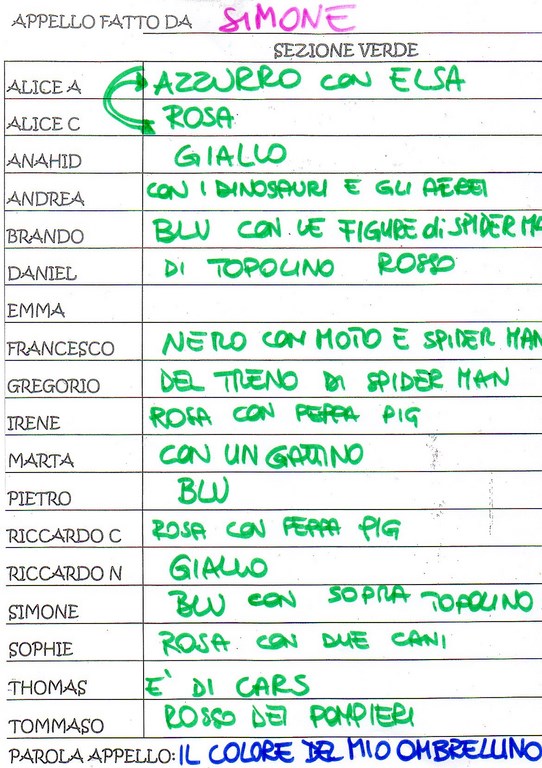 APPELLO FATTO DA SIMONE
SEZIONE VERDE
ALICE A AZZURRO CON ELSA
ALICE C ROSA
ANAHID GIALLO
ANDREA CON I DINOSAURI E GLI AEREI
BRANDO BLU CON LE FIGURE di SPIDER MA
DANIEL DI TOPOLINO ROSSO
EMMA
FRANCESCO NERO CON MOTO E SPIDER MAN
GREGORIO DEL TRENO DI SPIDER MAN
IRENE ROSA CON PEPPA PIG
MARTA CON UN GATTINO
PIETRO BLU
RICCARDO C ROSA CON PEPPA PIG
RICCARDO N GIALLO
SIMONE BLU CON SOPRA TOPOLINO
SOPHIE ROSA CON DUE CANI
THOMAS E' DI CARS
TOMMASO ROSSO DEI POMPIERI
PAROLA APPELLO: IL COLORE DEL MIO OMBRELLINO